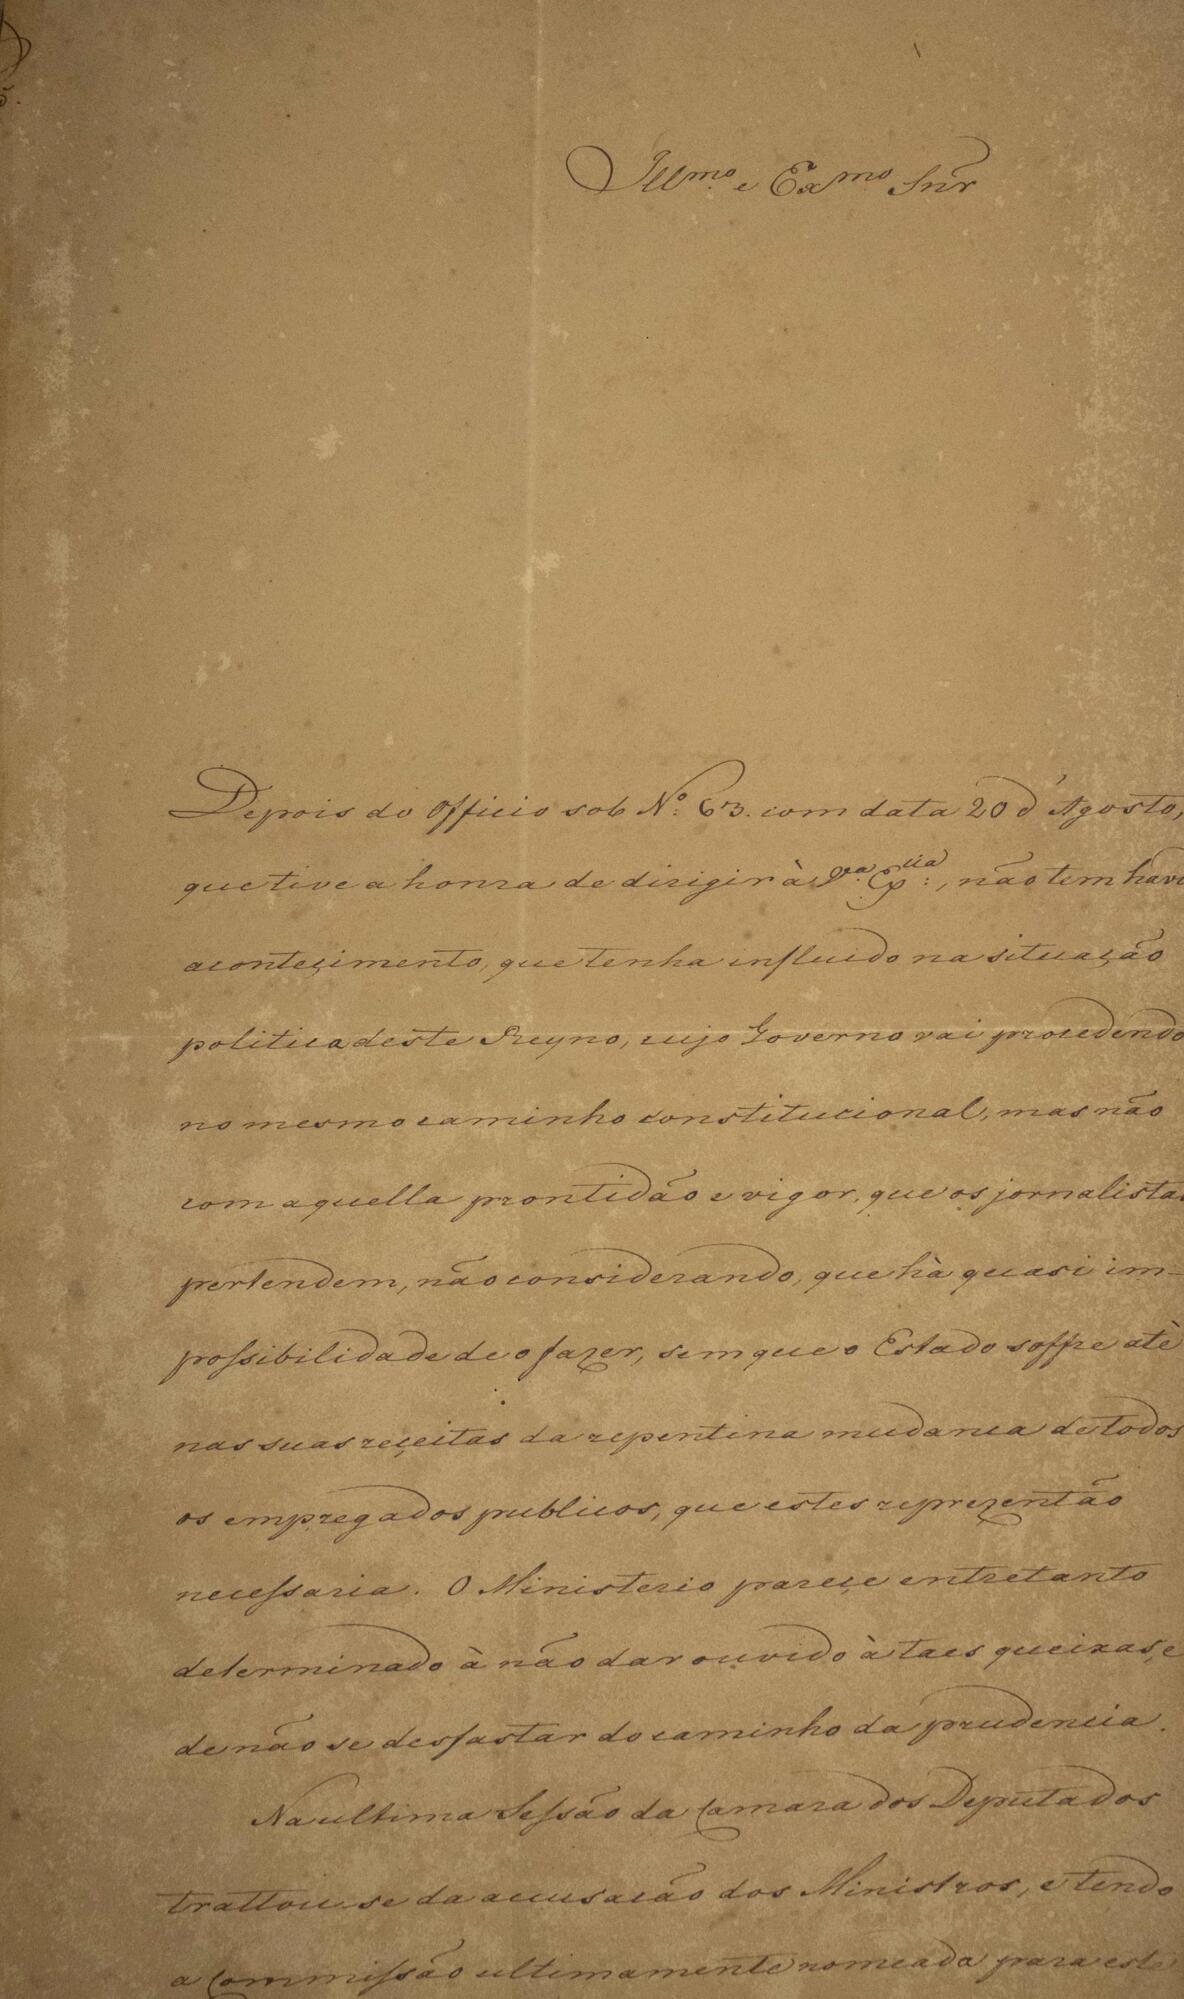 Illmo. e Exmo Snr
Depois do Officio sob Nº. 63. com data 20 d'Agosto,
que tive a honra de dirigir à Vª. Exª:, não tem havi
aconteçimento, que tenha influido na situação
politica deste Reyno, cujo Governo vai procedendo
no mesmo caminho constitucional, mas não
com aquella prontidão e vigor, que os jornalistas
pertendem, não considerando, que hà quasi im-
possibilidade de o fazer, sem que o Estado soffre atè
nas suas reçeitas da repentina mudanca de todos
os empregados publicos, que estes reprezentão
necessaria. O Ministerio pareçe entretanto
determinado à não dar ouvido à taes queixas, e
de não se desfastar do caminho da prudencia.
Na ultima Sessão da Camara dos Deputados
trattou-se da accusacão dos Ministros, e tendo
a Commissão ultimamente nomeada para este